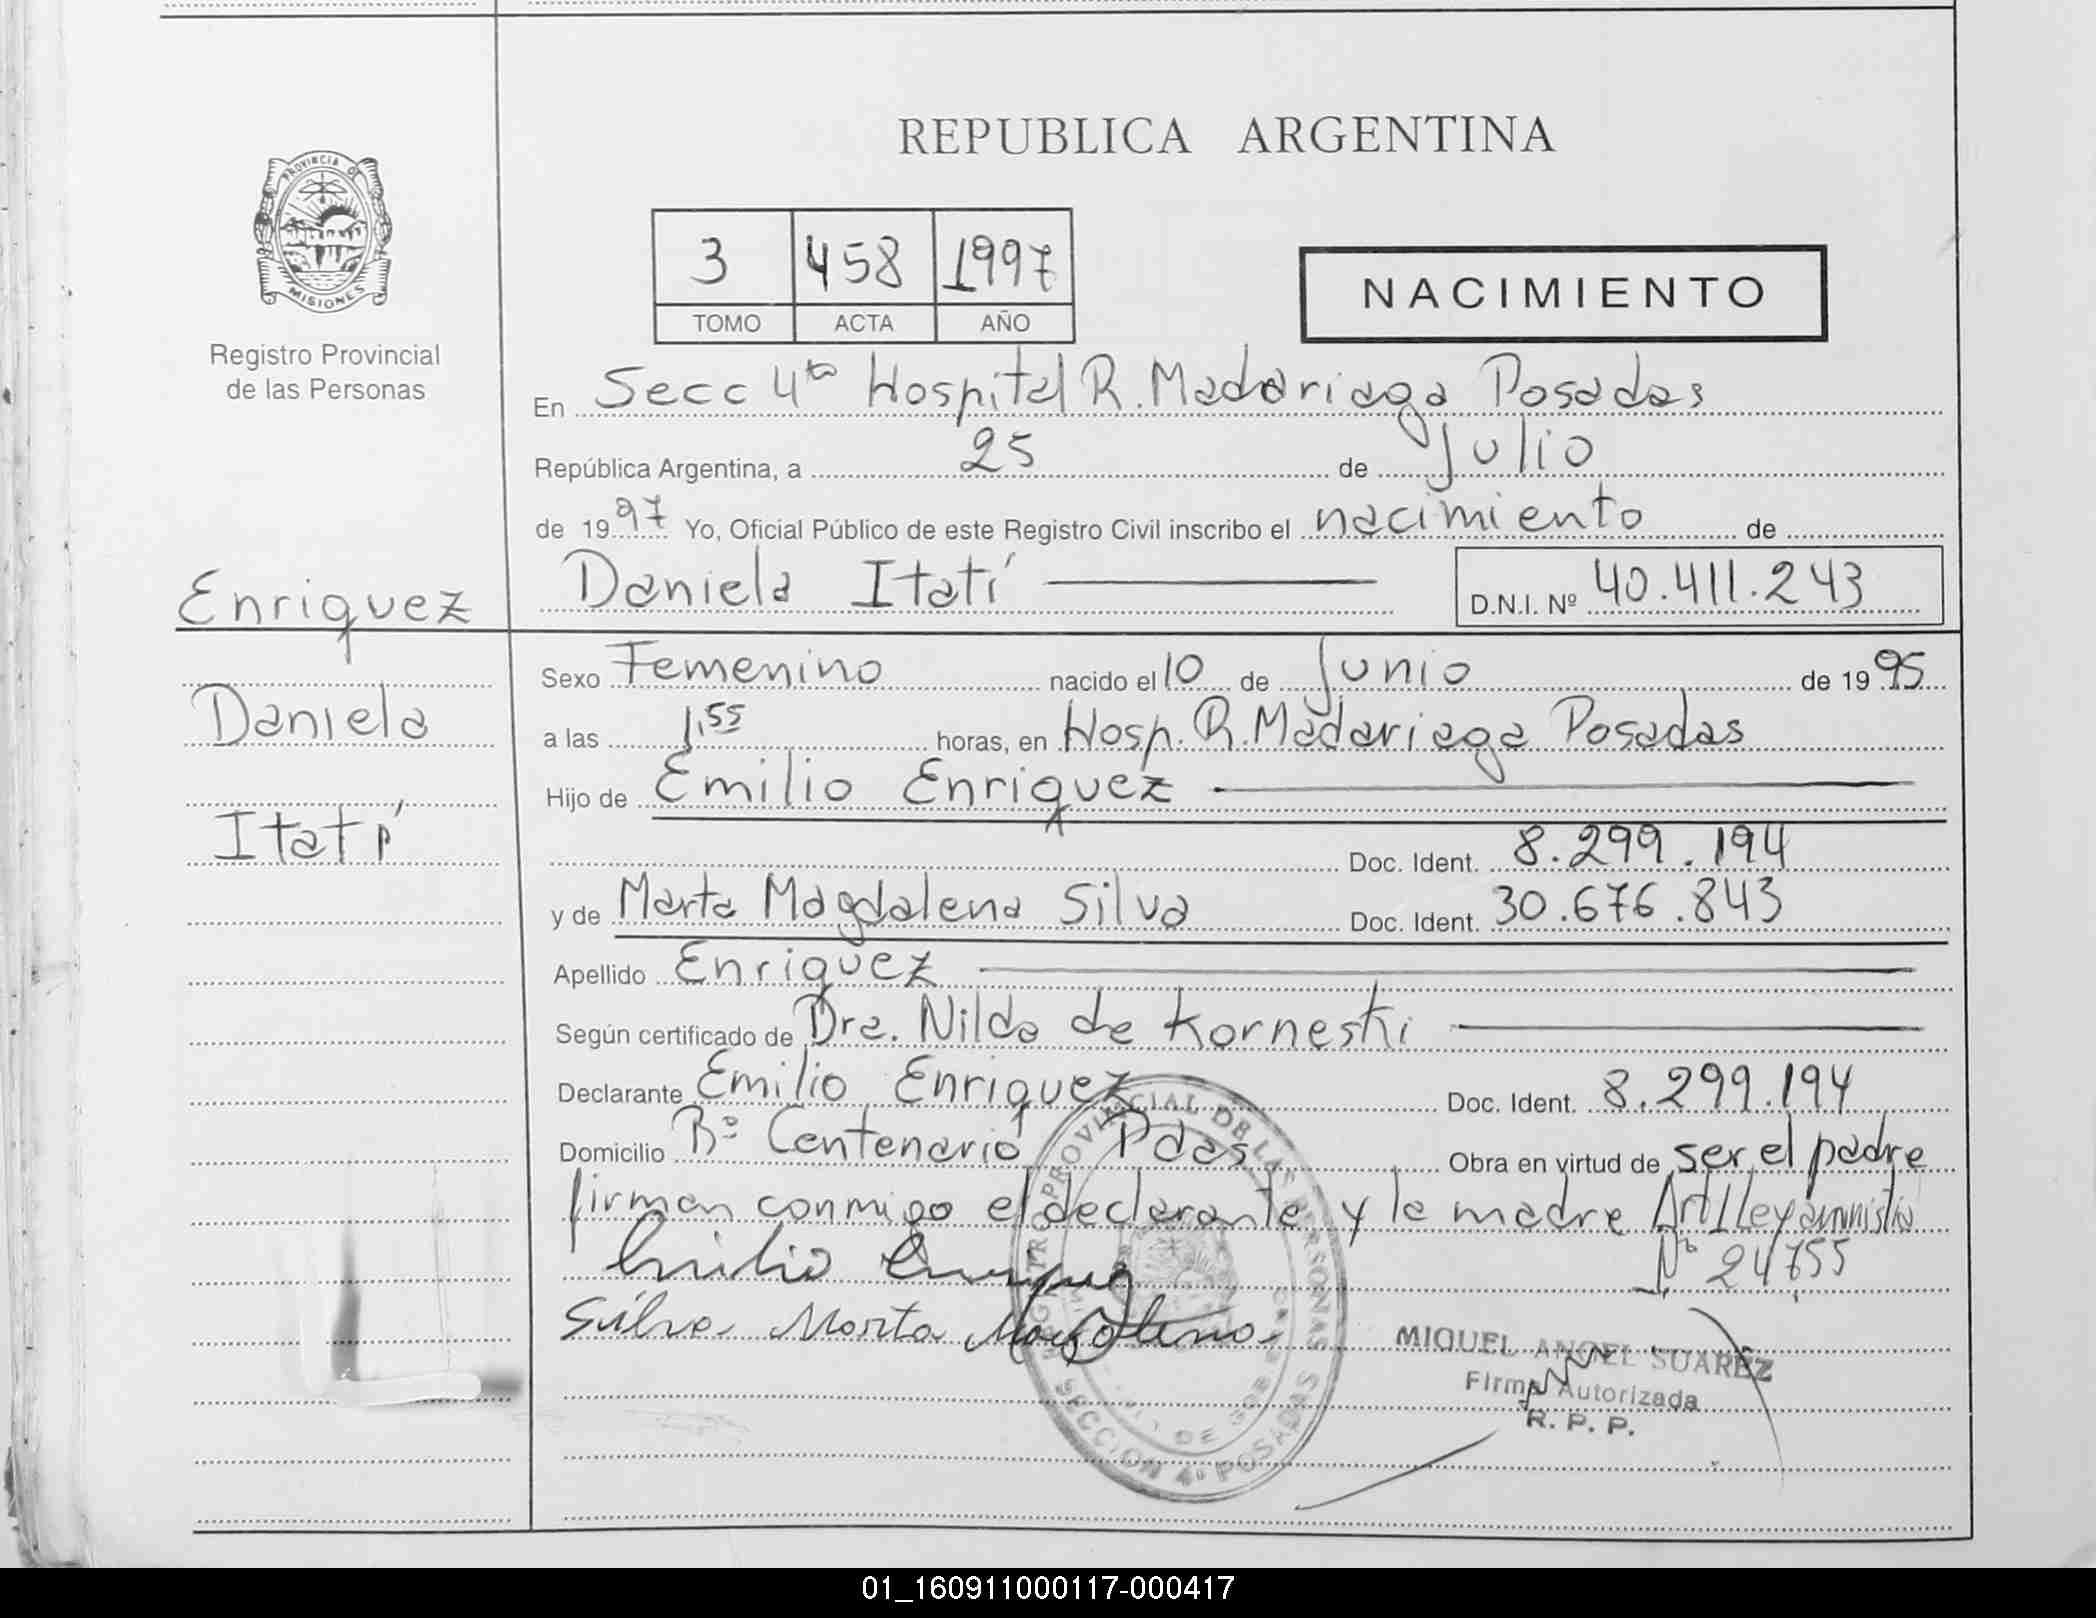 REPUBLICA ARGENTINA
PROVINCIA DE
MISIONES
Registro Provincial
de las Personas
3 458 1997
TOMO ACTA AÑO
NACIMIENTO
En Secc 4ta Hospital R. Madariaga Posadas
República Argentina, a 25 de Julio
de 1997 Yo, Oficial Público de este Registro Civil inscribo el nacimiento de
Enriquez
Daniela Itatí D.N.I. Nº 40.411.243
Daniela
Itatí
Sexo Femenino nacido el 10 de Junio de 1995
a las 1,55 horas, en Hosp. R. Madariaga Posadas
Hijo de Emilio Enriquez
Doc. Ident. 8.299.194
y de Marta Magdalena Silva Doc. Ident. 30.676.843
Apellido Enriquez
Según certificado de Dra. Nilda de Korneski
Declarante Emilio Enriquez Doc. Ident. 8.299.194
Domicilio Bº Centenario Pdas Obra en virtud de ser el padre
firman conmigo el declarante y la madre Art 1 Ley amnistia
Nº 24755
Emilio Enriquez
Silva Marta Magdalena
REGISTRO PROVINCIAL DE LAS PERSONAS
SECCION 4ª POSADAS
MIGUEL ANGEL SUAREZ
Firma Autorizada
R. P. P.
01_160911000117-000417